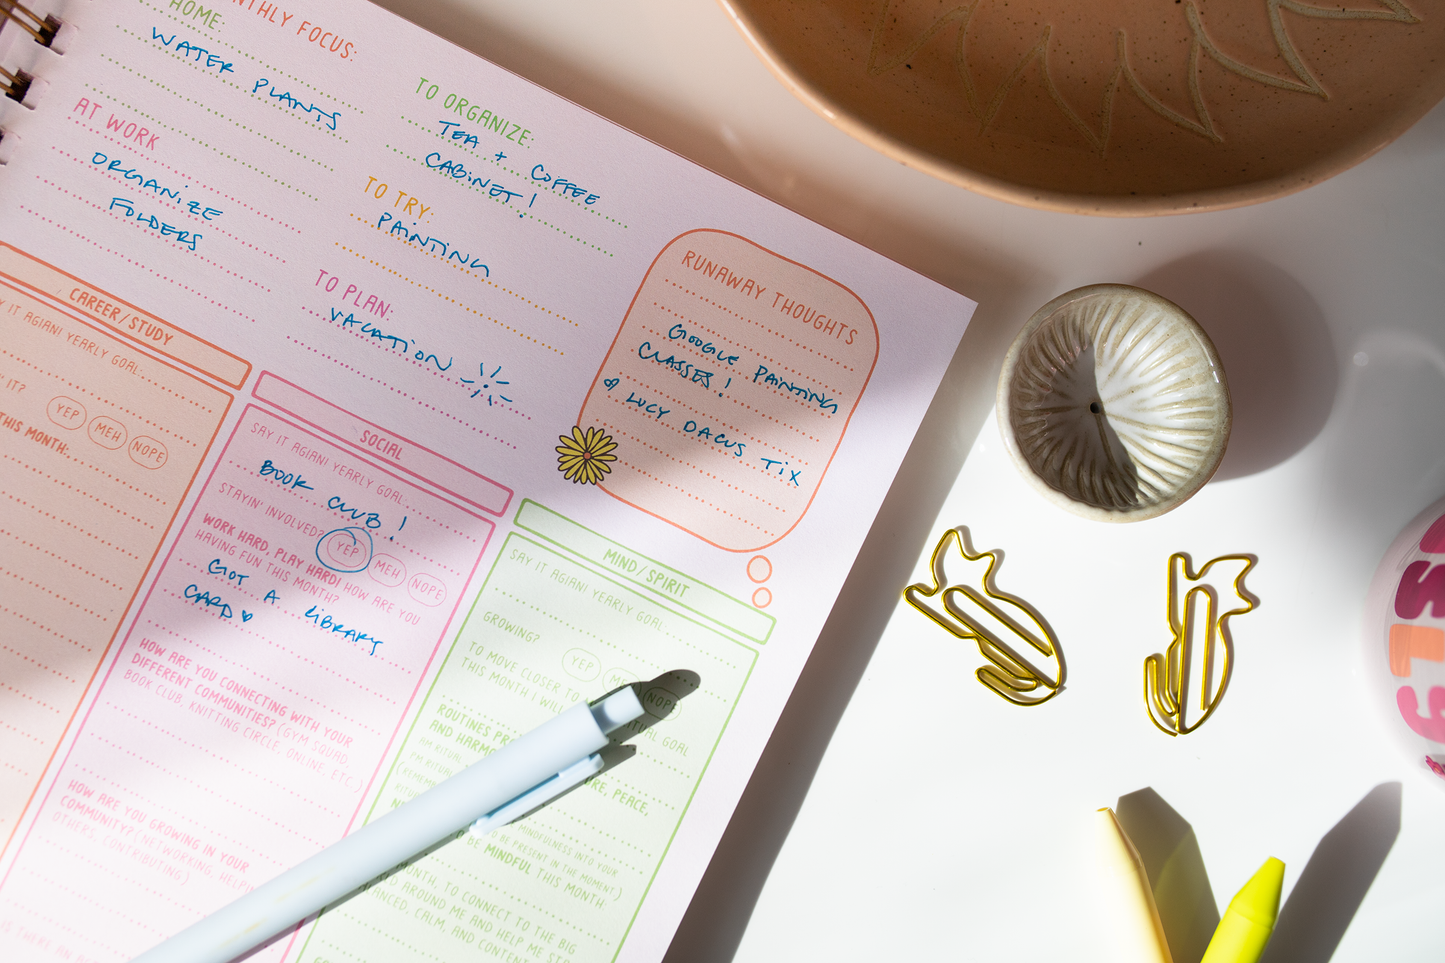 MONTHLY FOCUS:
HOME:
WATER PLANTS
AT WORK
ORGANIZE
FOLDERS
TO ORGANIZE:
TEA + COFFEE
CABINET!
TO TRY:
PAINTING
TO PLAN:
VACATION
RUNAWAY THOUGHTS
GOOGLE PAINTING
CLASSES!
LUCY DACUS TIX
CAREER/STUDY
SAY IT AGIAN! YEARLY GOAL:
IT?
YEP MEH NOPE
THIS MONTH:
SOCIAL
SAY IT AGIAN! YEARLY GOAL:
BOOK CLUB!
STAYIN' INVOLVED? YEP MEH NOPE
WORK HARD, PLAY HARD! HOW ARE YOU
HAVING FUN THIS MONTH?
GOT A LIBRARY
CARD
HOW ARE YOU CONNECTING WITH YOUR
DIFFERENT COMMUNITIES? (GYM SQUAD,
BOOK CLUB, KNITTING CIRCLE, ONLINE, ETC.)
HOW ARE YOU GROWING IN YOUR
COMMUNITY? (NETWORKING, HELPING
OTHERS, CONTRIBUTING)
IS THERE AN
MIND/SPIRIT
SAY IT AGIAN! YEARLY GOAL:
GROWING? YEP MEH NOPE
TO MOVE CLOSER TO GOAL
THIS MONTH I WILL
ROUTINES
AND PEACE,
MINDFULNESS INTO YOUR
BE PRESENT IN THE MOMENT.)
BE MINDFUL THIS MONTH
MONTH, TO CONNECT TO THE BIG
AROUND ME AND HELP ME
CALM, AND